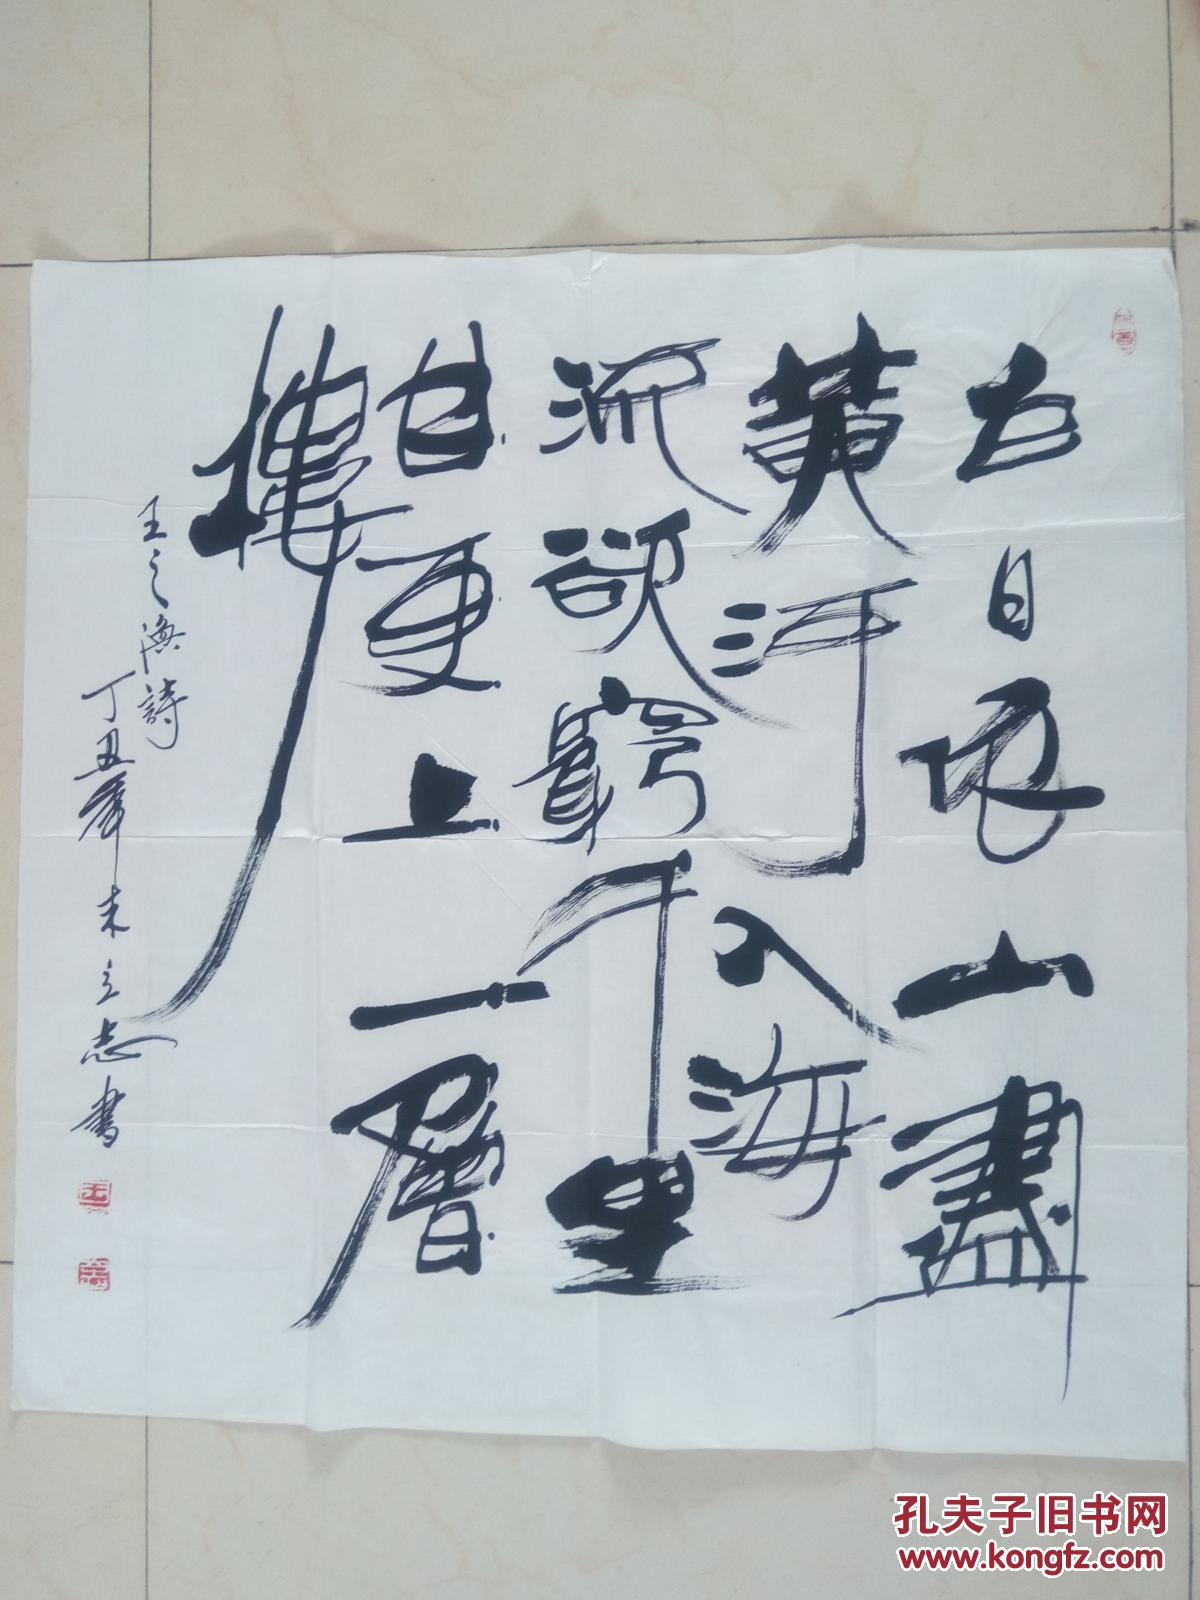 白日依山盡
黄河入海
流欲窮千里
目更上一層
樓
王之渙詩
丁丑年立志書
孔夫子旧书网
www.kongfz.com